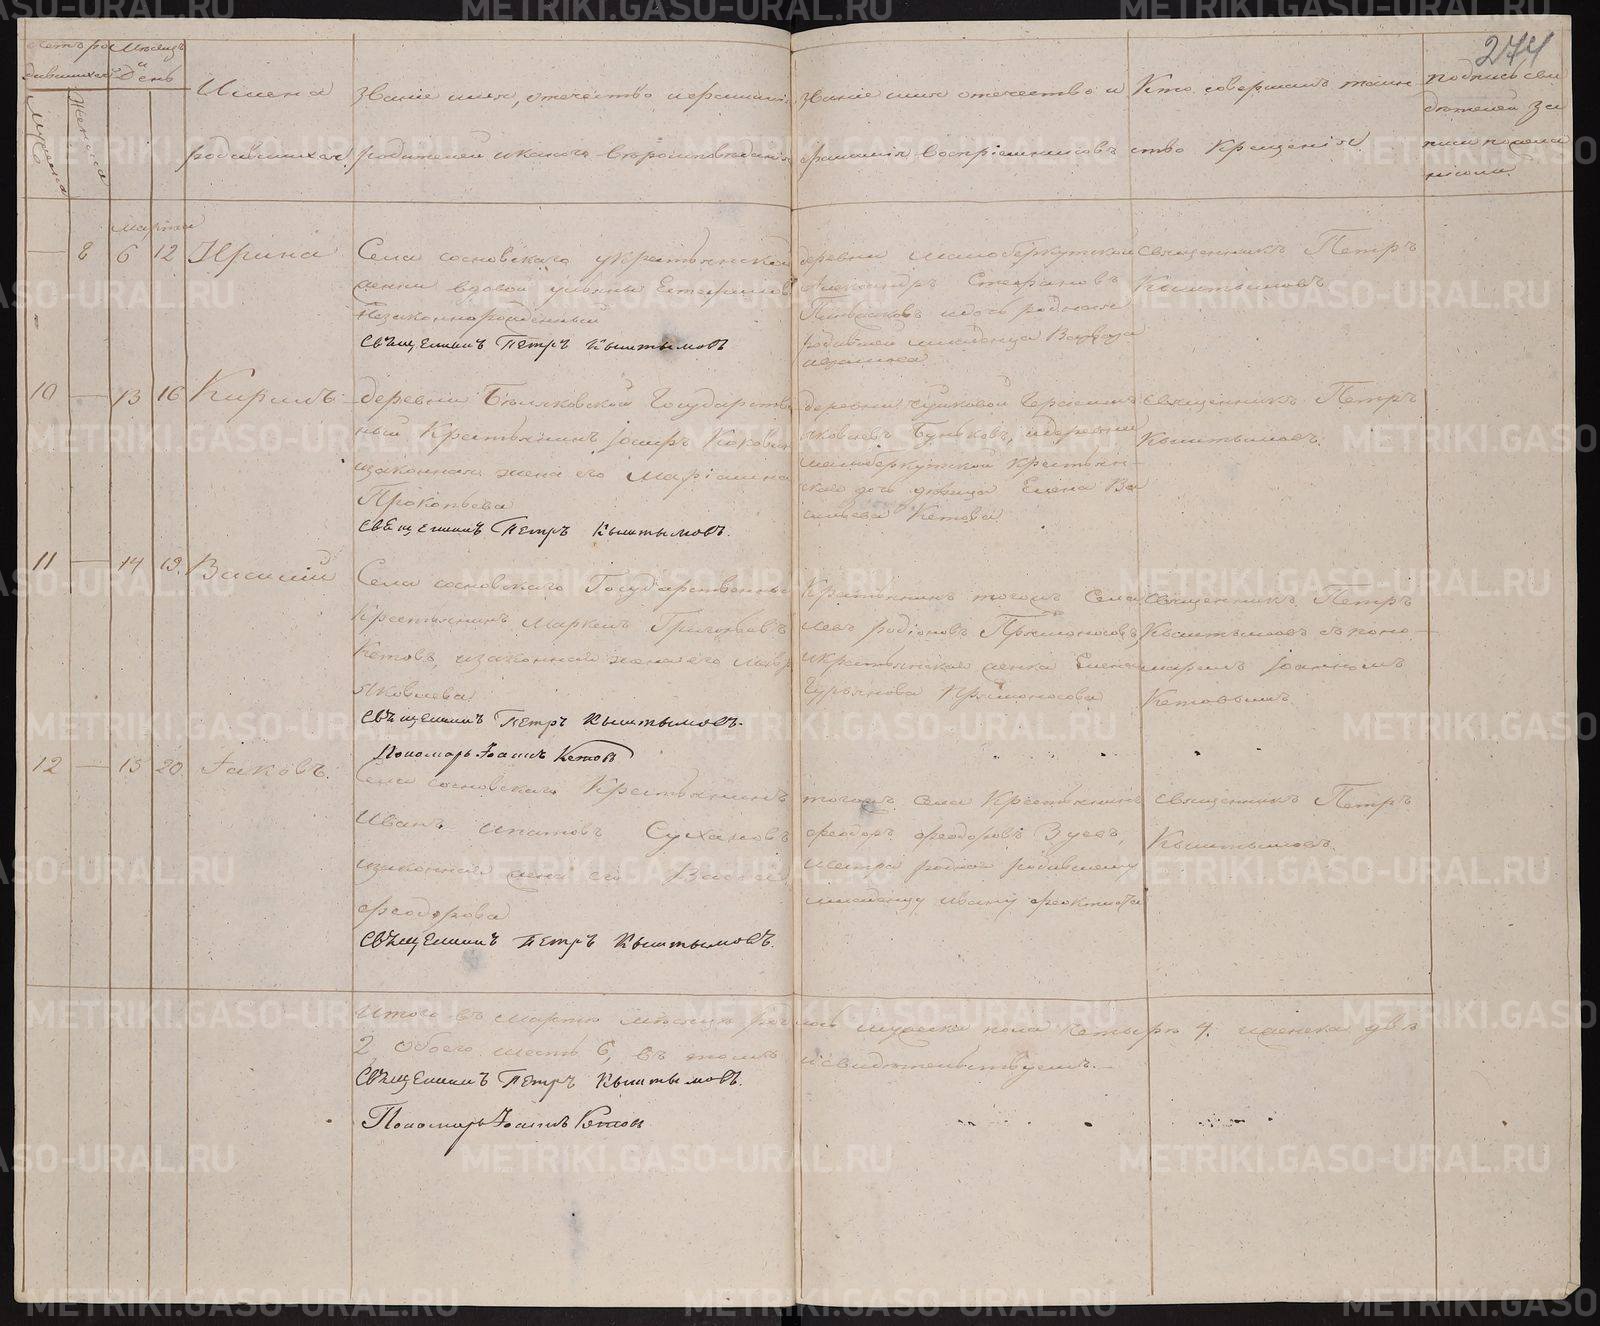 274
Мѣсяцъ
и
День
Имена
родившихся
Званіе имя, отечество и фамилія
родителей и какого вѣроисповеданія
Званіе имя отечество и
фамилія воспріемниковъ
Кто совершалъ таин
ство Крещенія
Подпись сви
дѣтелей за
писи по жела
нію
Мужеска
Женска
Марта
8 6 12 Ирина
Села сосновскаго у Крестьянской
женки вдовой
Незаконнорожденный
Священникъ Петръ Кыштымовъ
деревни малоберкутской
Александръ Стефановъ
родившей младенца Варвара
Священникъ Петръ
Кыштымовъ
10 — 13 16 Кирилъ
деревни Бѣликовской Государствен
ный Крестьянинъ
и законная жена его Маріамна
Прокопьева
Священникъ Петръ Кыштымовъ.
деревни
Яковлевъ Буньковъ, и деревни
малоберкутской Крестьян-
ская дочь дѣвица Елена Ва
сильева Кетова
Священникъ Петръ
Кыштымовъ.
11 — 14 19. Василій
Села сосновскаго Государственный
Крестьянинъ Маркелъ Григорьевъ
Кетовъ, и законная жена его
Яковлева
Священникъ Петръ Кыштымовъ.
Пономарь Іоаннъ Кетовъ
Крестьянинъ тогожъ Села
Левъ родіоновъ Прямоносовъ,
и крестьянская женка Елена
Гурьянова Прямоносова
Священникъ Петръ
Кыштымовъ съ поно-
маремъ Іоанномъ
Кетовымъ
12 — 15 20 Іаковъ.
Села сосновскаго Крестьянинъ
Иванъ Ипатовъ Сухановъ
и законная жена его Васса
Феодорова
Священникъ Петръ Кыштымовъ.
тогожъ Села Крестьянинъ
Феодоръ Феодоровъ Зуевъ,
родившему
младенцу Ивану Феоктиста
Священникъ Петръ
Кыштымовъ.
Итого въ Мартѣ мѣсяцѣ родилось мужеска пола четыре 4. женска двѣ
2 Обоего шесть 6, въ томъ и свидѣтельствуемъ.
Священникъ Петръ Кыштымовъ.
Пономарь Іоаннъ Кетовъ